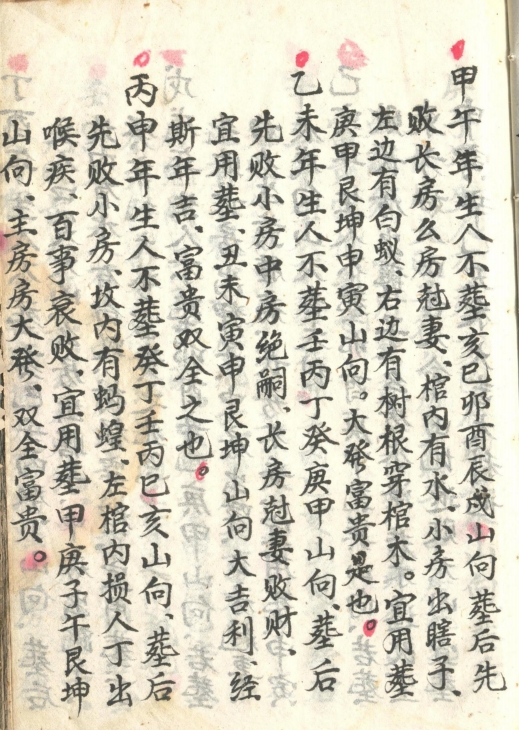 甲午年生人不塟亥巳卯酉辰戌山向塟后先
败长房么房尅妻、棺内有水、小房出瞎子、
左边有白蚁、右边有树根穿棺木。宜用塟
庚甲艮坤申寅山向。大發富贵是也。
乙未年生人不塟壬丙丁癸庚甲山向、塟后
先败小房中房绝嗣、长房尅妻败财、
宜用塟、丑未寅申艮坤山向大吉利、经
斯年吉、富贵双全之也。
丙申年生人不塟癸丁壬丙巳亥山向、塟后
先败小房、坟内有蚂蝗、左棺内损人丁出
喉疾、百事衰败、宜用塟甲庚子午艮坤
山向、主房房大發、双全富贵。